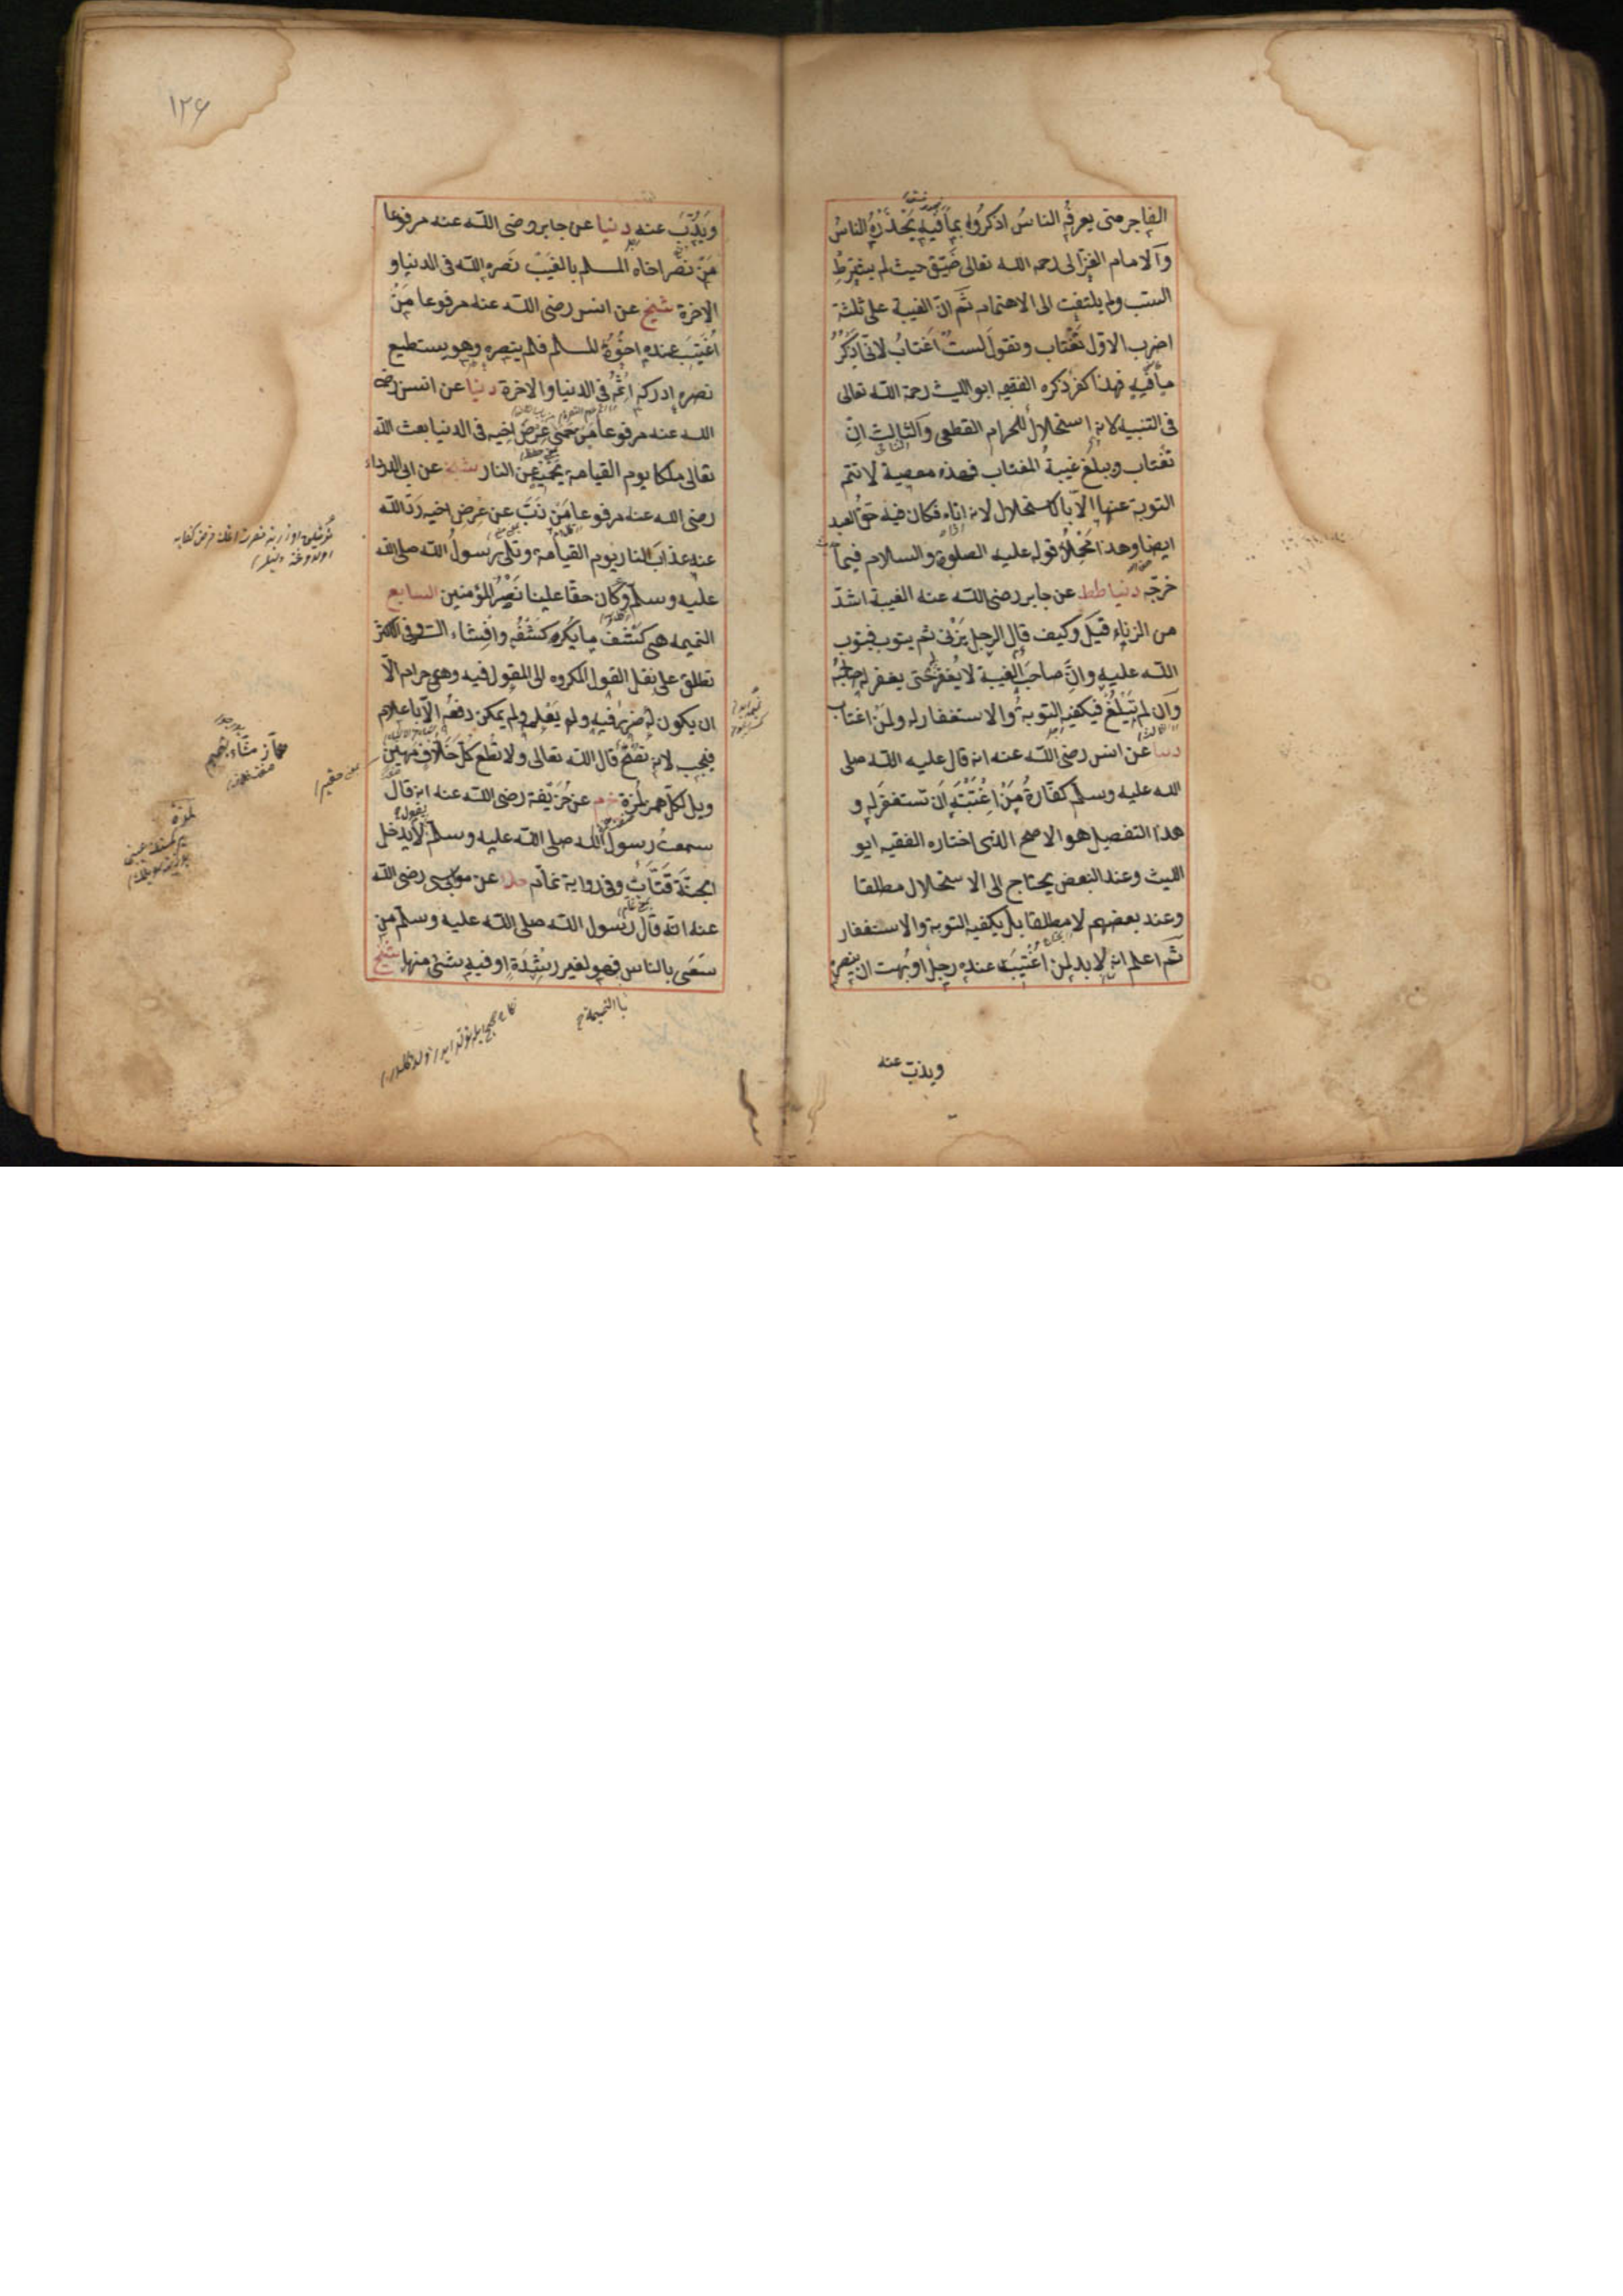 الفاجر متى يعرفه الناس اذكروه بما فيه يحذره الناس
والامام الغزالى رحمه الله تعالى ضيق حيث لم يشترط
السب ولم يلتفت الى الاهتمام ثم ان الغيبة على ثلثة
اضرب الاول تغتاب وتقول لست اغتاب لانى اذكر
ما فيه فهذا كفر ذكره الفقيه ابو الليث رحمة الله تعالى
فى التنبيه لانه استحلال للحرام القطعى والثالث ان
تغتاب ويبلغ غيبة المغتاب فهذه معصية لا تتم
التوبة عنها الا بالاستحلال لانه اذاه فكان فيه حق العبد
ايضا وهذا محمل قوله عليه الصلوة والسلام فيما
خرجه دنيا طط عن جابر رضى الله عنه الغيبة اشد
من الزناء قيل وكيف قال الرجل يزنى ثم يتوب فيتوب
الله عليه وان صاحب الغيبة لا يغفر حتى يغفر له صاحبه
وان لم تبلغ فيكفيه التوبة والاستغفار له ولمن اغتاب
دنيا عن انس رضى الله عنه انه قال عليه الله صلى
الله عليه وسلم كفارة من اغتبته ان تستغفر له و
هذا التفصيل هو الاصح الذى اختاره الفقيه ابو
الليث وعند البعض يحتاج الى الاستحلال مطلقا
وعند بعضهم لا مطلقا بل يكفيه التوبة والاستغفار
ثم اعلم انه لا بد لمن اغتيب عنده رجل او بهت ان ينصره
ويذب عنه
١٢٦
ويذب عنه دنيا عن جابر رضى الله عنه مرفوعا
من نصر اخاه المسلم بالغيب نصره الله فى الدنيا و
الاخرة شيخ عن انس رضى الله عنه مرفوعا من
اغتيب عنده اخوه المسلم فلم ينصره وهو يستطيع
نصره ادركه اثمه فى الدنيا والاخرة دنيا عن انس رضى
الله عنه مرفوعا من حمى عرض اخيه فى الدنيا بعث الله
تعالى ملكا يوم القيامة يحميه عن النار شيخ عن ابى الدرداء
رضى الله عنه مرفوعا من ذب عن عرض اخيه رد الله
عنه عذاب النار يوم القيامة وتلى رسول الله صلى الله
عليه وسلم وكان حقا علينا نصر المؤمنين السابع
النميمه هى كشف ما يكره كشفه وافشاء السر وفى الاكثر
تطلق على نقل القول المكروه الى المقول فيه وهى حرام الا
ان يكون له ضرر فيه ولم يعلم ولم يمكن دفعه الا باعلام
فيجب لانه نصح قال الله تعالى ولا تطع كل حلاف مهين
ويل لكل همزة لمزة خ م عن حذيفة رضى الله عنه انه قال
سمعت رسول الله صلى الله عليه وسلم يقول لا يدخل
الجنة قتات وفى رواية نمام حاك عن موسى رضى الله
عنه انه قال رسول الله صلى الله عليه وسلم من
سعى بالناس فهو لغير رشدة او فيه شئ منها شيخ
هماز مشاء بنميم
لمزة
با النميمة